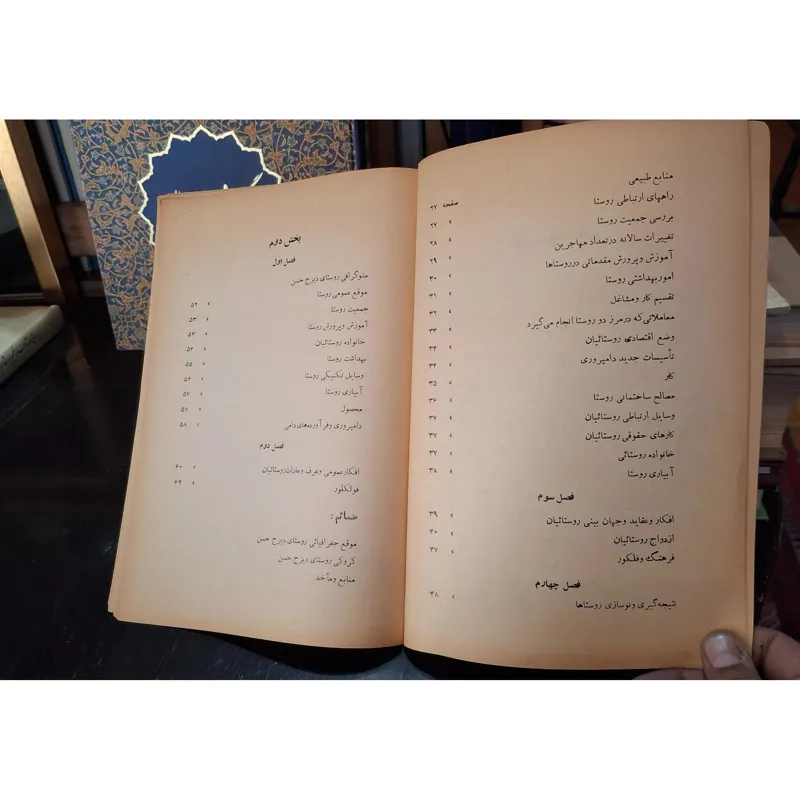 منابع طبیعی
راههای ارتباطی روستا صفحه ۲۷
بررسی جمعیت روستا » ۲۷
تغییرات سالانه درتعداد مهاجرین » ۲۸
آموزش وپرورش مقدماتی درروستاها » ۲۹
اموربهداشتی روستا » ۳۰
تقسیم کار ومشاغل » ۳۱
معاملاتی‌که درمرز دو روستا انجام می‌گیرد » ۳۲
وضع اقتصادی روستائیان » ۳۳
تأسیسات جدید دامپروری » ۳۴
کار » ۳۴
مصالح ساختمانی روستا » ۳۵
وسایل ارتباطی روستائیان » ۳۶
کارهای حقوقی روستائیان » ۳۷
خانواده روستائی » ۳۷
آبیاری روستا » ۳۷
» ۳۸
فصل سوم
افکار وعقاید وجهان بینی روستائیان » ۳۹
ازدواج روستائیان » ۳۰
فرهنگ وفلکور » ۳۷
فصل چهارم
نتیجه‌گیری ونوسازی روستاها » ۳۸
بخش دوم
فصل اول
منوگرافی روستای دیزج حسن
موقع عمومی روستا
جمعیت روستا » ۵۲
آموزش وپرورش روستا » ۵۳
خانواده روستائیان » ۵۴
بهداشت روستا » ۵۴
وسایل تکنیکی روستا » ۵۵
آبیاری روستا » ۵۶
محصول » ۵۷
دامپروری وفرآورده‌های دامی » ۵۷
» ۵۸
فصل دوم
افکارعمومی وعرف وعادات‌روستائیان » ۶۰
فوالکلور » ۶۲
ضمائم :
موقع جغرافیائی روستای دیزج حسن
کروکی روستای دیزج حسن
منابع ومآخذ